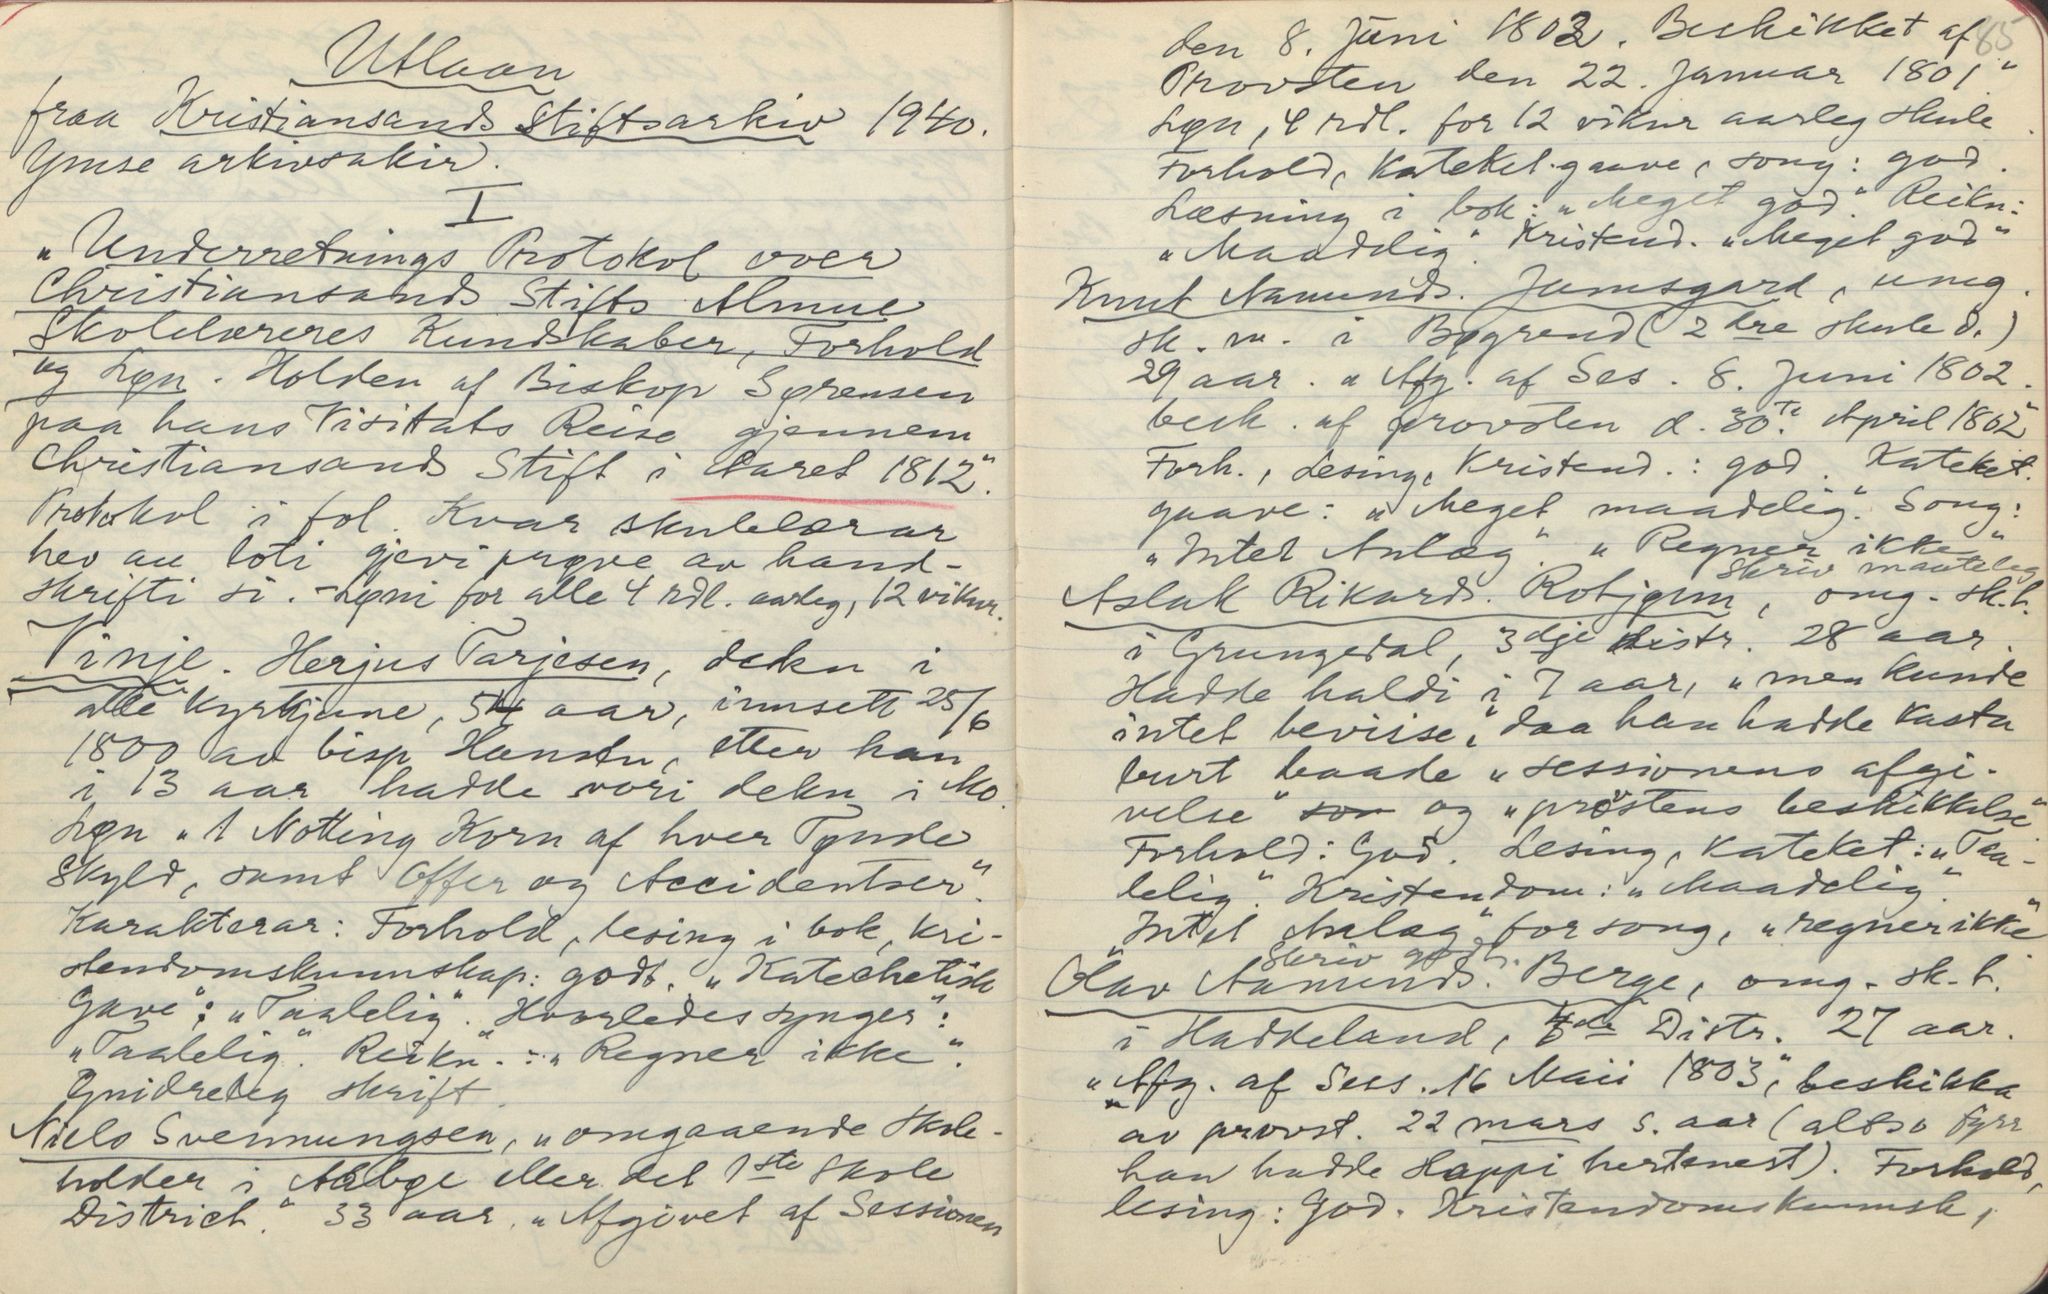 Utlaan
fraa Kristiansands Stiftsarkiv 1940.
Ymse arkivsakir.
I
"Underretnings Protokol over
Christiansands Stifts Almue
Skolelæreres Kundskaber, Forhold
og Løn. Holden af Biskop Sørensen
paa hans Visitats Reise gjennem
Christiansands Stift i Aaret 1812".
Protokol i fol. Kvar skulelærar
hev au loti gjevi prøve av hand-
skrifti si. - Løni for alle 4 rdl. aarleg, 12 vikur.
Vinje. Herjus Tarjesen, dekn i
alle kyrkjune, 54 aar, innsett 25/6
1800 av bisp Hansen, etter han
i 13 aar hadde vori dekn i Mo.
Løn "1 Notting Korn af hver Tønde
Skyld, samt Offer og Accidentser".
Karakterar: Forhold, lesing i bok, kri-
stendomskunnskap: godt. "Katechetisk
Gave": "Taalelig". Hvorledes synger":
"Taalelig". Reikn": "Regner ikke".
Gnidreleg skrift.
Niels Svennungsen, "omgaaende Skole-
holder i Aabge eller det 1ste Skole
District." 33 aar. "Afgivet af Sessionen
85
den 8. Juni 1802. Beskikket af
Provsten den 22. Januar 1801."
Løn, 4 rdl. for 12 vikur aarleg skule.
Forhold, Kateket.gaave, song: god.
Læsning i bok: "Meget god". Reikn:
"Maadelig". Kristend. "Meget god"
Knut Aamunds. Jamsgard, umg.
sk. m. i Bøgrend (2dre skule d.)
29 aar. "Afg. af Ses. 8. Juni 1802.
besk. af provsten d. 30te April 1802"
Forh., Lesing, Kristend.: god. Kateket.
gaave: "Meget maadelig". Song:
"Intet Anlæg". "Regner ikke"
Skriv maateleg
Aslak Rikards. Rotjønn, omg. sk.h.
i Grungedal, 3dje distr. 28 aar.
Hadde haldi i 7 aar, "men kunde
intet bevisse", daa han hadde kasta
burt baade "sessionens afgi-
velse" som og "prostens beskikkelse".
Forhold: God. Lesing, Kateket: "Taa-
lelig". Kristendom: "Maadelig".
Intet Anlæg" for song, "regner ikke"
Skriv godt.
Olav Aamunds. Berge, omg. sk.h.
i Haddeland, 4de Distr. 27 aar.
"Afg. af Sess. 16 Maii 1803", beskikka
av provst. 22 mars s. aar (altso fyrr
han hadde sloppi hertenest). Forhold,
lesing: God. Kristendomskunnsk,